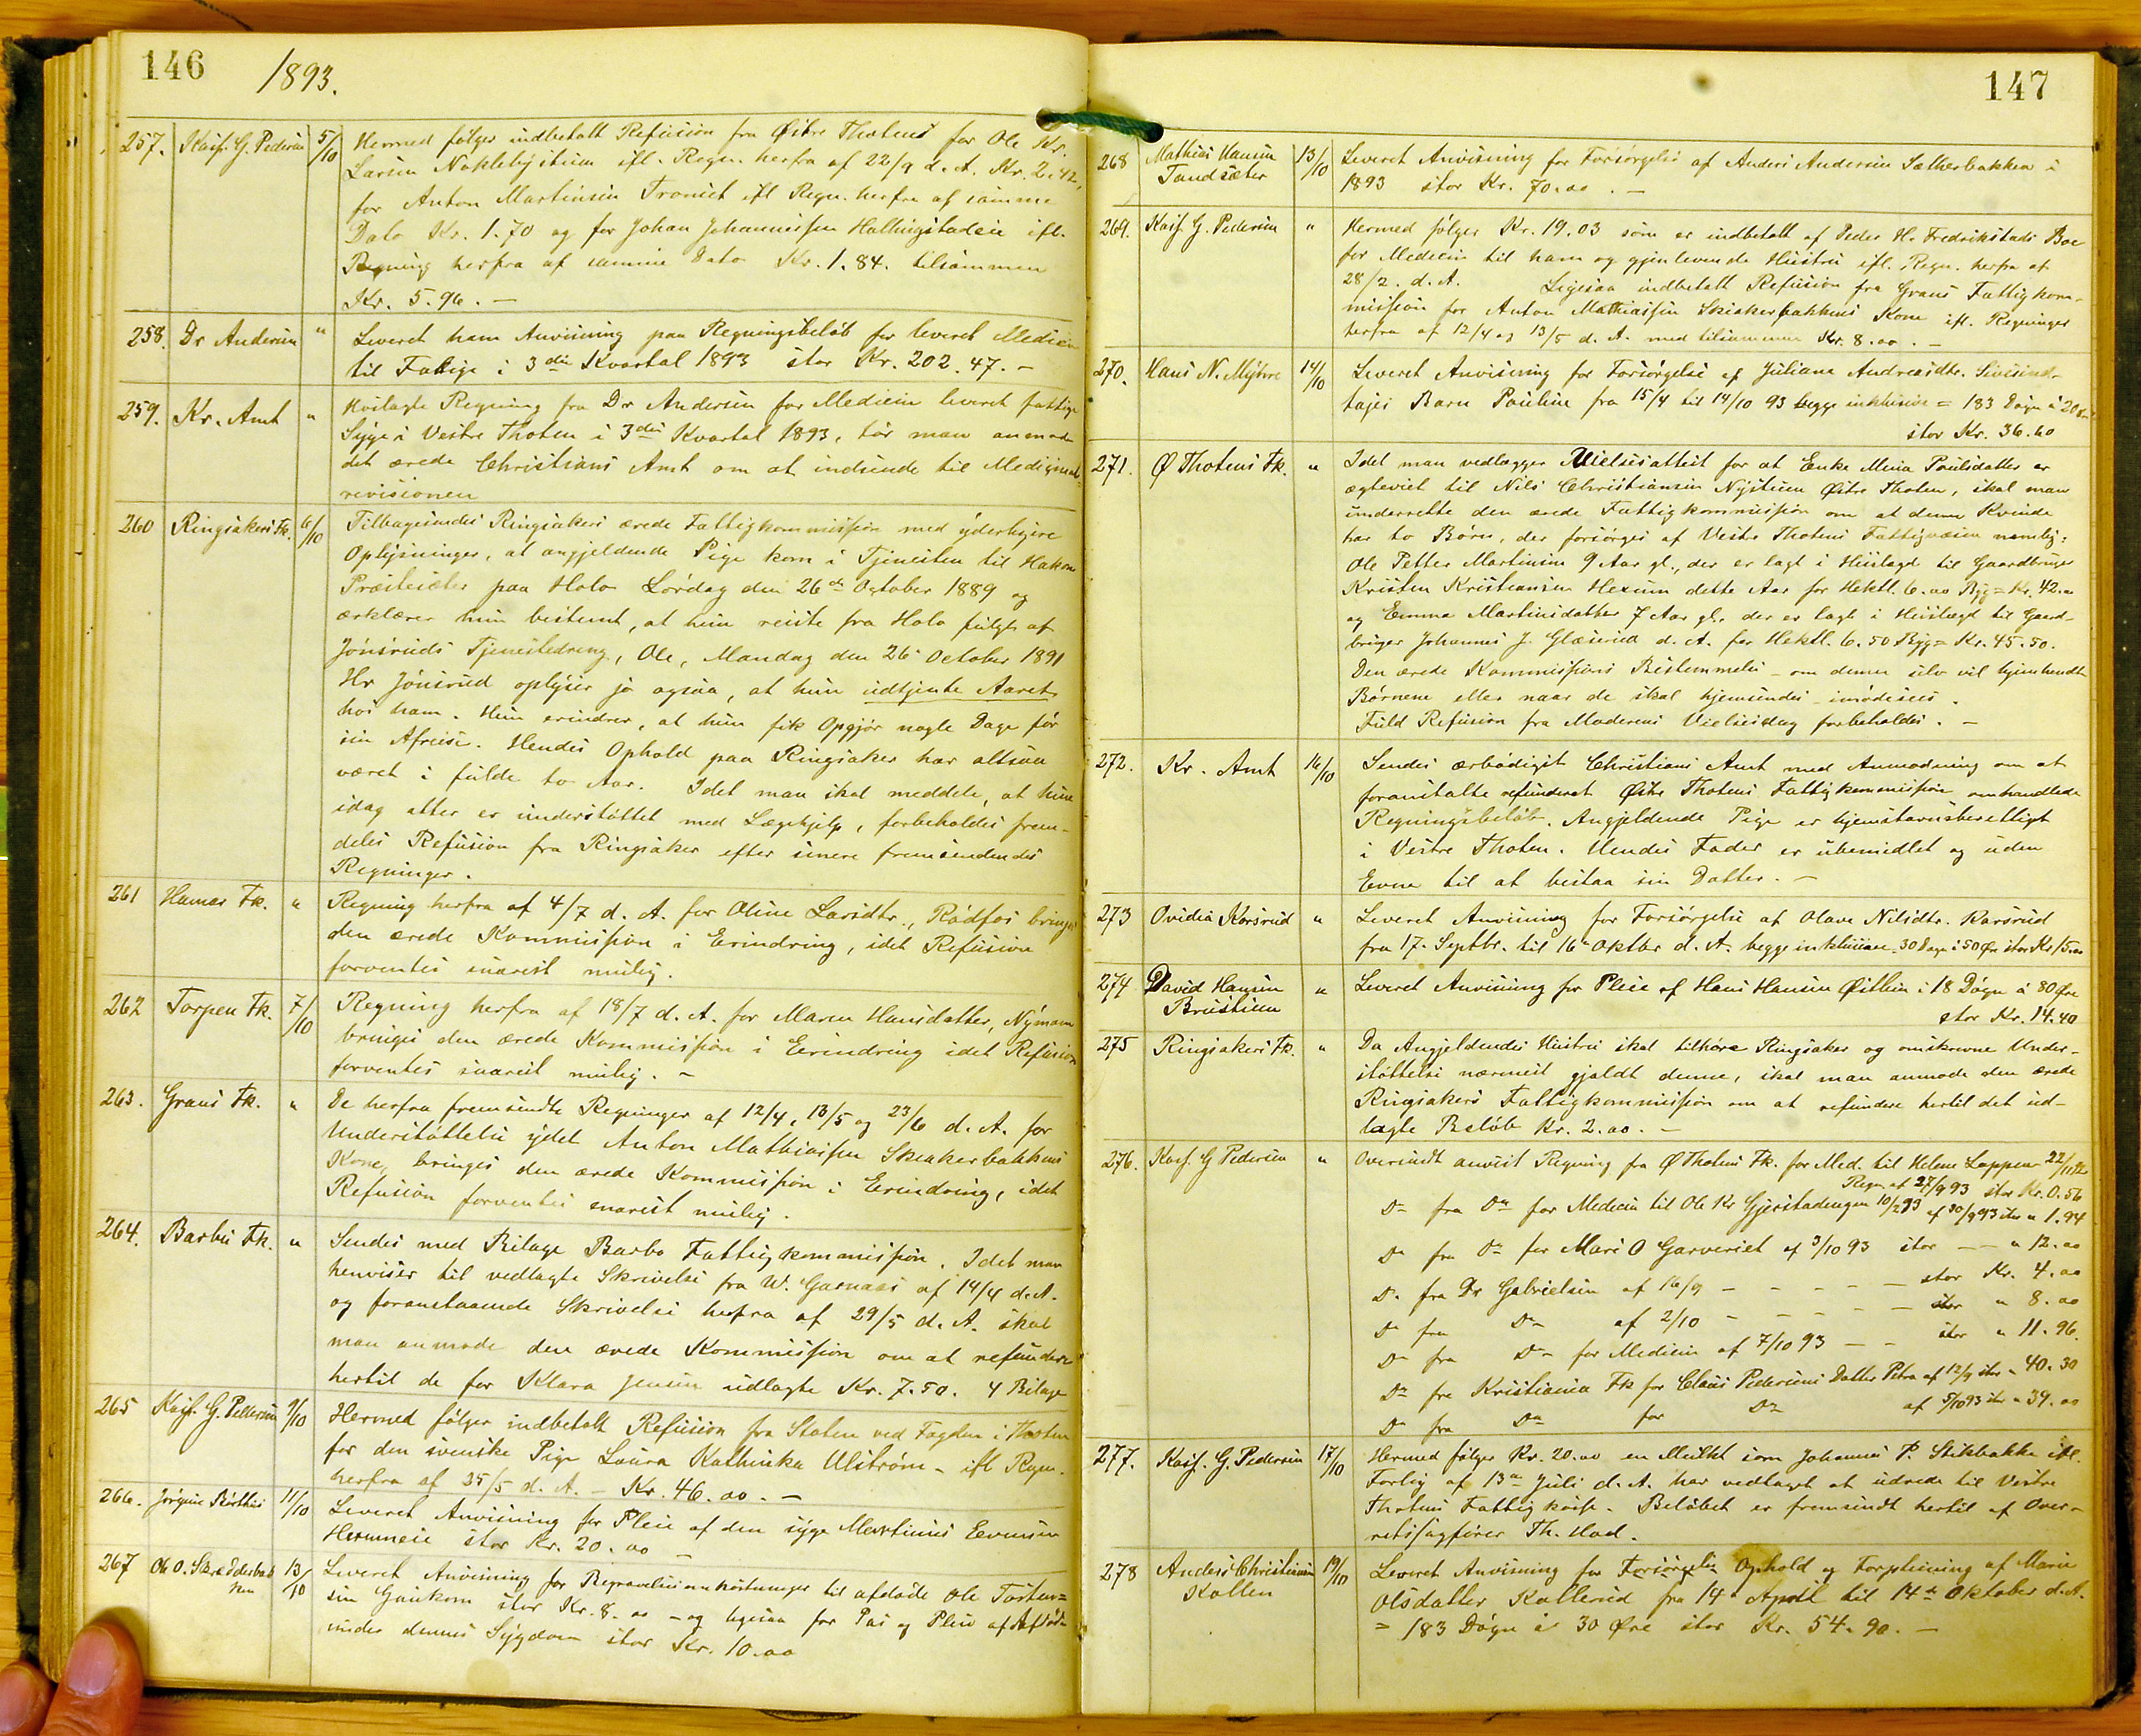 146
1893.
257. Kasf. G. Pedersen 5/10 Hermed følger indbetalt Refusion fra Østre Thotens for Ole Kr.
Larsen Naklebystuen ifl. Regn. herfra af 22/9 d. A. Kr. 2.42,
for Anton Martinsen Tromet ifl Regn. herfra af samme
Dato Kr. 1.70 og for Johan Johannisen Hallingstadeie ifl.
Regning herfra af samme Dato Kr. 1.84. tilsammen
Kr. 5.96. —
258. Dr Andersen " Leveret ham Anvisning paa Regningsbeløb for leveret Medicin
til Fattige i 3die Kvartal 1893 stor Kr. 202.47. —
259. Kr. Amt " Hvilagte Regning fra Dr Andersen for Medicin leveret fattige
Syge i Vestre Thoten i 3die Kvartal 1893, tør man anmode
det ærede Christians Amt om at indsende til Medicinal-
revisionen
260 Ringsakers Fk. 6/10 Tilbagesendes Ringsakers ærede Fattigkommission med yderligere
Oplysninger, at angjeldende Pige kom i Tjenesten til Hakon
Præstesæter paa Holo Lørdag den 26de October 1889 og
erklærer hun bestemt, at hun reiste fra Holo fulgt af
Jønsruds Tjenestedreng, Ole, Mandag den 26 October 1891
Hr Jønsrud oplyser jo ogsaa, at hun udtjente Aaret
hos ham. Hun erindrer, at hun fik Opgjør nogle Dage før
sin Afreise. Hendes Ophold paa Ringsaker har altsaa
været i fulde to Aar. Idet man skal meddele, at hun
idag atter er understøttet med Lægehjelp, forbeholdes frem-
deles Refusion fra Ringsaker efter senere fremsendendes
Regninger.
261 Hamar Fk. " Regning herfra af 4/7 d. A. for Oline Larsdtr., Rødfos bringes
den ærede Kommission i Erindring, idet Refusion
forventes snarest mulig.
262 Torpen Fk. 7/10 Regning herfra af 18/7 d. A. for Maren Hansdatter, Nymoen
bringes den ærede Kommission i Erindring idet Refusion
forventes snarest mulig. —
263. Grans Fk. " De herfra fremsendte Regninger af 12/4, 13/5 og 23/6 d. A. for
Understøttelse ydet Anton Mathiasen Skiakerbakkens
Kone, bringes den ærede Kommission i Erindring, idet
Refusion forventes snarest mulig.
264. Barbu Fk. " Sendes med Bilage Barbo Fattigkommission. Idet man
henviser til vedlagte Skrivelse fra W. Garnaas af 14/4 d. A.
og foranstaaende Skrivelse herfra af 29/5 d. A. skal
man anmode den ærede Kommission om at refundere
hertil de for Klara Jensen udlagte Kr. 7.50. 4 Bilage
265 Kasf. G. Pedersen 9/10 Hermed følger indbetalt Refusion fra Staten ved Fogden i Thoten
for den svenske Pige Laura Kathinka Ulstrøm - ifl Regn.
herfra af 25/5 d. A. — Kr. 46.00. —
266. Jørgine 11/10 Leveret Anvisning for Pleie af den syge Martinus Evensen
Hermneie stor Kr. 20.00 —
267 Ole O. Skrædderbakken 13/10 Leveret Anvisning for Begravelsesomkostninger til afdøde Ole Torsten=
sen Gaukom stor Kr. 8.00 — og ligesaa for Pas og Pleie af Afdøde
under dennes Sygdom stor Kr. 10.00
147
268 Mathias Hansen
Sandsæter 13/10 Leveret Anvisning for Forsørgelse af Anders Andersen Sætherbakken i
1893 stor Kr. 70.00. —
269. Kasf. G. Pedersen " Hermed følger Kr. 19.03 som er indbetalt af Peder H. Fredrikstads Boe
for Medicin til ham og gjenlevende Hustru ifl. Regn. herfra af
28/2. d. A. Ligesaa indbetalt Refusion fra Grans Fattigkom-
mission for Anton Mathiassen Skiakerbakkens Kone ifl. Regninger
herfra af 12/4 og 13/5 d. A. med tilsammen Kr. 8.00. —
270. Hans N. Myhre 14/10 Leveret Anvisning for Forsørgelse af Juliane Andreasdtr.
Barn Pauline fra 15/4 til 14/10 93 begge inklusive = 183 Døgn à 20 Øre
stor Kr. 36.60
271. Ø Thotens Fk. " Idet man vedlægger Vielsesattest for at Enke Mina Paulsdatter er
ægteviet til Nils Christiansen Nystuen Østre Thoten, skal man
underrette den ærede Fattigkommission om at denne Kvinde
har to Børn, der forsørges af Vestre Thotens Fattigvæsen nemlig:
Ole Petter Martinsen 9 Aar gl., der er lagt i Huslægd til Gaardbruger
Kristen Kristiansen Hexum dette Aar for Hektl. 6.00 Byg = Kr. 42.00
og Emma Martinsdatter 7 Aar gl. der er lagt i Huslægd til Gaard-
bruger Johannes J. Glæserud d. A. for Hektl. 6.50 Byg = Kr. 45.50.
Den ærede Kommissions Bestemmelse - om denne selv vil hjemhendte
Børnene eller naar de skal hjemsendes - imødesees.
Fuld Refusion fra Moderens Vielsesdag forbeholdes. —
272. Kr. Amt 16/10 Sendes ærbødigst Christians Amt med Anmodning om at
foranstalte refunderet Østre Thotens Fattigkommission omhandlede
Regningsbeløb. Angjeldende Pige er hjemstavnsberettiget
i Vestre Thoten. Hendes Fader er ubemidlet og uden
Evne til at bistaa sin Datter. —
273 Ovidia Korsrud " Leveret Anvisning for Forsørgelse af Olave Nilsdtr. Karsrud
fra 17. Septbr. til 16 Oktbr d. A. begge inklusive. 30 Dage à 50 Øre stor Kr 15.00
274 David Hansen
Brustuen " Leveret Anvisning for Pleie af Hans Hansen Østlien i 18 Døgn à 80 Øre
stor Kr. 14.40
275 Ringsakers Fk. " Da Angjeldendes Hustru skal tilhøre Ringsaker og omskrevne Under-
støttelse nærmest gjaldt denne, skal man anmode den ærede
Ringsakers Fattigkommission om at refundere hertil det ud-
lagte Beløb Kr. 2.00. —
276. Kasf. G Pedersen " Oversendt anvist Regning fra Ø Thotens Fk. for Med. til Helene Loppen 22/11 92
Regn. af 27/9 93 stor Kr. 0.56
Do fra Do for Medicin til Ole Kr Gjerstadengen 10/2 93 af 30/9 93 stor " 1.94
Do fra Do for Mari O Garveriet af 3/10 93 stor — — " 12.00
Do fra Dr Gabrielsen af 16/9 — — — — — stor Kr. 4.00
Do fra Do af 2/10 — — — — — stor " 8.00
Do fra Do for Medicin af 7/10 93 — — stor " 11.96.
Do fra Kristiania Fk for Claus Pedersens Datter Petra af 12/9 stor " 40.30
Do fra Do for Do af 5/10 93 stor " 39.00
277. Kasf. G. Pedersen 17/10 Hermed følger Kr. 20.00 en Mulkt som Johannes P. Stikbakke ifl.
Forlig af 13de Juli d. A. har vedtaget at udrede til Vestre
Thotens Fattigkasse. Beløbet er fremsendt hertil af Over-
retssagfører Th. Hod.
278 Anders Christiansen
Kollen 19/10 Leveret Anvisning for Forsørgelse Ophold og Forpleining af Marie
Olsdatter Kollerud fra 14 April til 14de Oktober d. A.
= 183 Døgn à 30 Øre stor Kr. 54.90. —